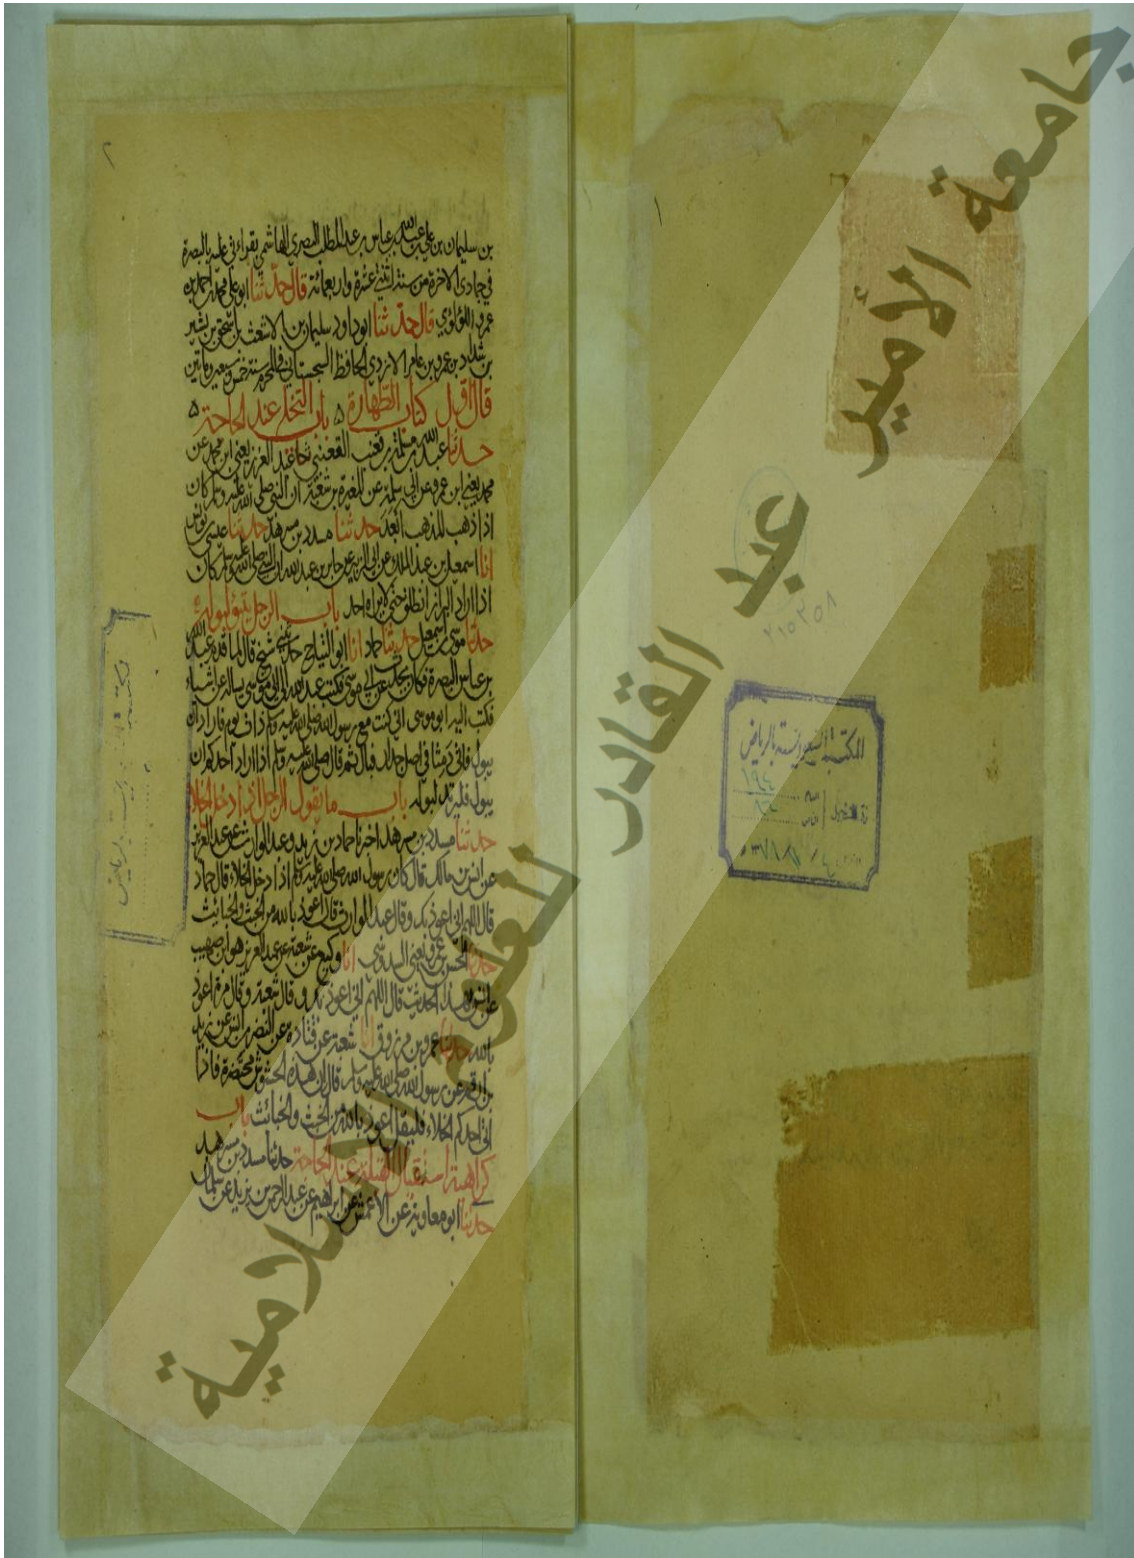 ١
٢١٥٢٥٨
المكتبة السعودية بالرياض
٢
بن سليمان بن علي بن عبد الله بن عباس بن عبد المطلب البصري الهاشمي بقراءتي عليه بالبصرة
في جمادى الاخرة من سنة اثنتي عشرة واربعمائة قال حدثنا ابو علي محمد بن احمد بن
عمرو اللؤلؤي قال حدثنا ابو داود سليمان بن الاشعث بن اسحق بن بشير
بن شداد بن عمرو بن عامر الازدي الحافظ السجستاني في المحرم سنة خمس وسبعين ومايتين
قال اول كتاب الطهارة ٥ باب التخلي عند الحاجة ٥
حدثنا عبد الله بن مسلمة بن قعنب القعنبي عبد العزيز يعني ابن محمد عن
محمد يعني ابن عمرو عن ابي سلمة عن المغيرة بن شعبة ان النبي صلى الله عليه وسلم كان
اذا ذهب المذهب ابعد حدثنا مسدد بن مسرهد حدثنا عيسى بن يونس
انا اسمعيل بن عبد الملك عن ابي الزبير عن جابر بن عبد الله ان النبي صلى الله عليه وسلم كان
اذا اراد البراز انطلق حتى لا يراه احد باب الرجل يتبوأ لبوله
حدثنا موسى بن اسمعيل حدثنا حماد انا ابو التياح حدثني شيخ قال لما قدم عبد الله
بن عباس البصرة فكان يحدث عن ابي موسى فكتب عبد الله الى ابي موسى يساله عن اشياء
فكتب اليه ابو موسى اني كنت مع رسول الله صلى الله عليه وسلم ذات يوم فاراد ان
يبول فاتى دمثا في اصل جدار فبال ثم قال صلى الله عليه وسلم اذا اراد احدكم ان
يبول فليرتد لبوله باب ما يقول الرجل اذا دخل الخلا
حدثنا مسدد بن مسرهد اخبرنا حماد بن زيد وعبد الوارث عن عبد العزيز
عن انس بن مالك قال كان رسول الله صلى الله عليه وسلم اذا دخل الخلاء قال حماد
قال اللهم اني اعوذ بك وقال عبد الوارث قال اعوذ بالله من الخبث والخبائث
حدثنا الحسن بن عمرو يعني السدوسي انا وكيع عن شعبة عن عبد العزيز هو ابن صهيب
عن انس بهذا الحديث قال اللهم اني اعوذ بك وقال شعبة وقال مرة اعوذ
بالله حدثنا عمرو بن مرزوق انا شعبة عن قتادة عن النضر بن انس عن زيد
بن ارقم عن رسول الله صلى الله عليه وسلم قال ان هذه الحشوش محتضرة فاذا
اتى احدكم الخلاء فليقل اعوذ بالله من الخبث والخبائث باب
كراهية استقبال القبلة عند الحاجة حدثنا مسدد بن مسرهد
حدثنا ابو معاوية عن الاعمش عن ابراهيم عن عبد الرحمن بن يزيد عن سلمان
جامعة الأمير عبد القادر للعلوم الإسلامية